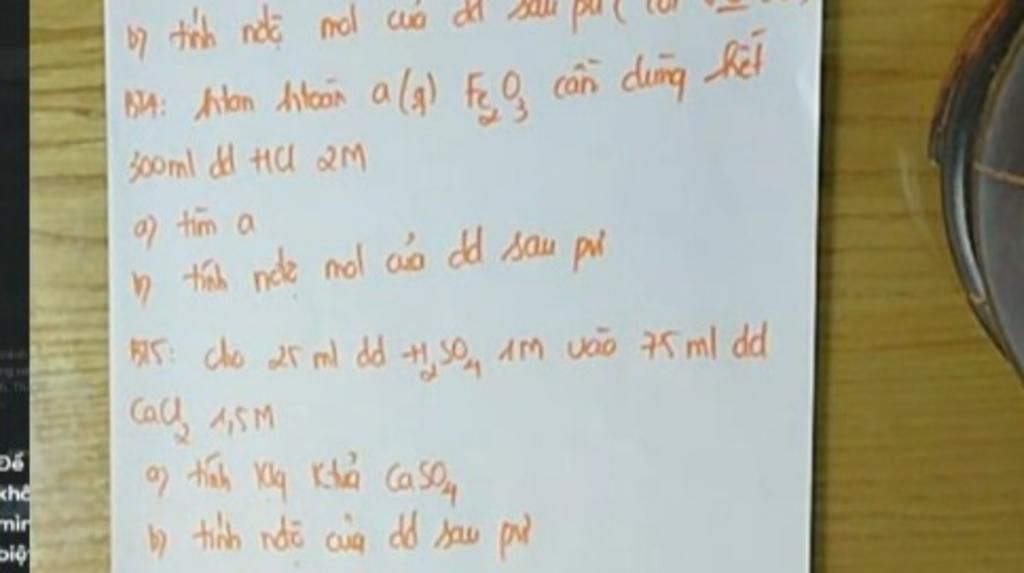 b) tính nđộ mol của dd sau pư (
BT4: htan htoàn a(g) Fe2O3 cần dùng hết
300ml dd HCl 2M
a) tìm a
b) tính nđộ mol của dd sau pư
BT5: cho 25 ml dd H2SO4 1M vào 75 ml dd
CaCl2 1,5M
a) tính klg Ktủa CaSO4
b) tính nđộ của dd sau pư
Để
khô
mìn
biệ